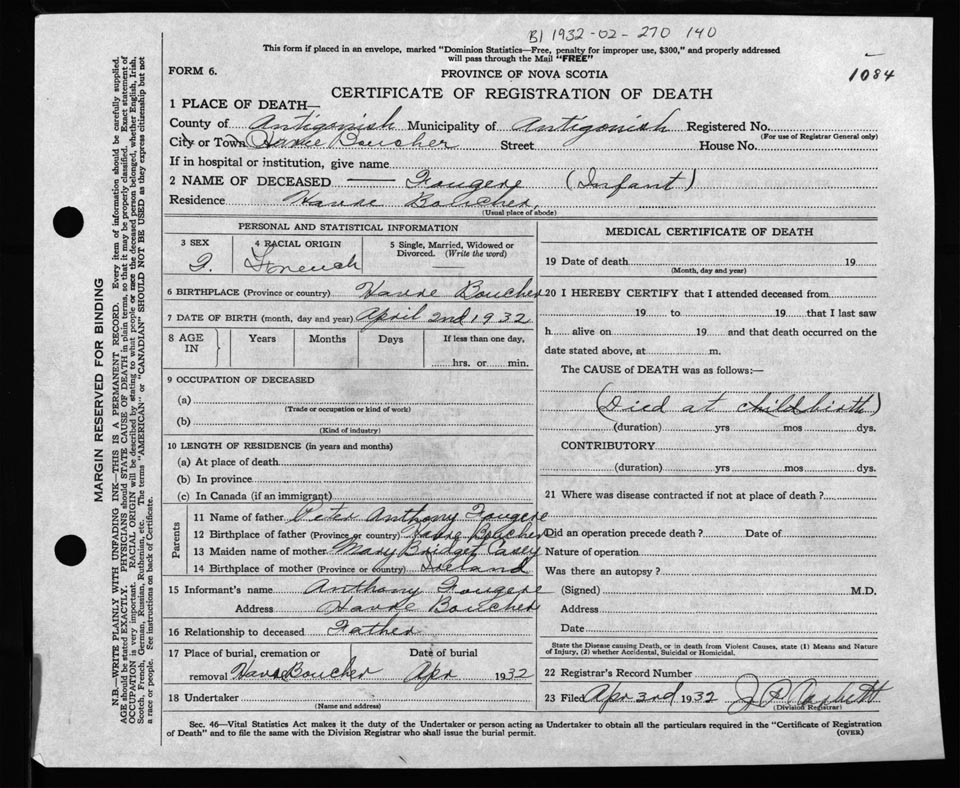 B1 1932-02-270 140
This form if placed in an envelope, marked "Dominion Statistics—Free, penalty for improper use, $300," and properly addressed
will pass through the Mail "FREE"
1084
FORM 6.
PROVINCE OF NOVA SCOTIA
CERTIFICATE OF REGISTRATION OF DEATH
1 PLACE OF DEATH—
County of Antigonish Municipality of Antigonish Registered No.
(For use of Registrar General only)
City or Town Havre Boucher Street House No.
If in hospital or institution, give name
2 NAME OF DECEASED — Fougere (Infant)
Residence Havre Boucher.
(Usual place of abode)
PERSONAL AND STATISTICAL INFORMATION
3 SEX 4 RACIAL ORIGIN 5 Single, Married, Widowed or
Divorced. (Write the word)
F. French —
6 BIRTHPLACE (Province or country) Havre Boucher
7 DATE OF BIRTH (month, day and year) April 2nd 1932
8 AGE IN Years Months Days If less than one day,
hrs. or min.
9 OCCUPATION OF DECEASED
(a)
(Trade or occupation or kind of work)
(b)
(Kind of industry)
10 LENGTH OF RESIDENCE (in years and months)
(a) At place of death
(b) In province
(c) In Canada (if an immigrant)
Parents
11 Name of father Peter Anthony Fougere
12 Birthplace of father (Province or country) Havre Boucher
13 Maiden name of mother Mary Bridget Casey
14 Birthplace of mother (Province or country) Ireland
15 Informant's name Anthony Fougere
Address Havre Boucher
16 Relationship to deceased Father
17 Place of burial, cremation or Date of burial
removal Havre Boucher Apr 1932
18 Undertaker
(Name and address)
MEDICAL CERTIFICATE OF DEATH
19 Date of death 19
(Month, day and year)
20 I HEREBY CERTIFY that I attended deceased from
19 to 19 that I last saw
h alive on 19 and that death occurred on the
date stated above, at m.
The CAUSE of DEATH was as follows:—
(Died at childbirth)
(duration) yrs mos dys.
CONTRIBUTORY
(duration) yrs mos dys.
21 Where was disease contracted if not at place of death?
Did an operation precede death? Date of
Nature of operation
Was there an autopsy?
(Signed) M.D.
Address
Date
State the Disease causing Death, or in death from Violent Causes, state (1) Means and Nature
of Injury, (2) whether Accidental, Suicidal or Homicidal.
22 Registrar's Record Number
23 Filed Apr 3rd 1932 J. P.
(Division Registrar)
Sec. 46—Vital Statistics Act makes it the duty of the Undertaker or person acting as Undertaker to obtain all the particulars required in the "Certificate of Registration
of Death" and to file the same with the Division Registrar who shall issue the burial permit. (OVER)
MARGIN RESERVED FOR BINDING
N.B.—WRITE PLAINLY WITH UNFADING INK—THIS IS A PERMANENT RECORD. Every item of information should be carefully supplied.
AGE should be stated EXACTLY. PHYSICIANS should STATE CAUSE OF DEATH in plain terms, so that it may be properly classified. Exact statement of
OCCUPATION is very important. RACIAL ORIGIN will be described by stating to what people or race the deceased person belonged, whether English, Irish,
Scotch, French, German, Russian, Ruthenian, etc. The terms "AMERICAN" or "CANADIAN" SHOULD NOT BE USED as they express citizenship but not
a race or people. See instructions on back of Certificate.